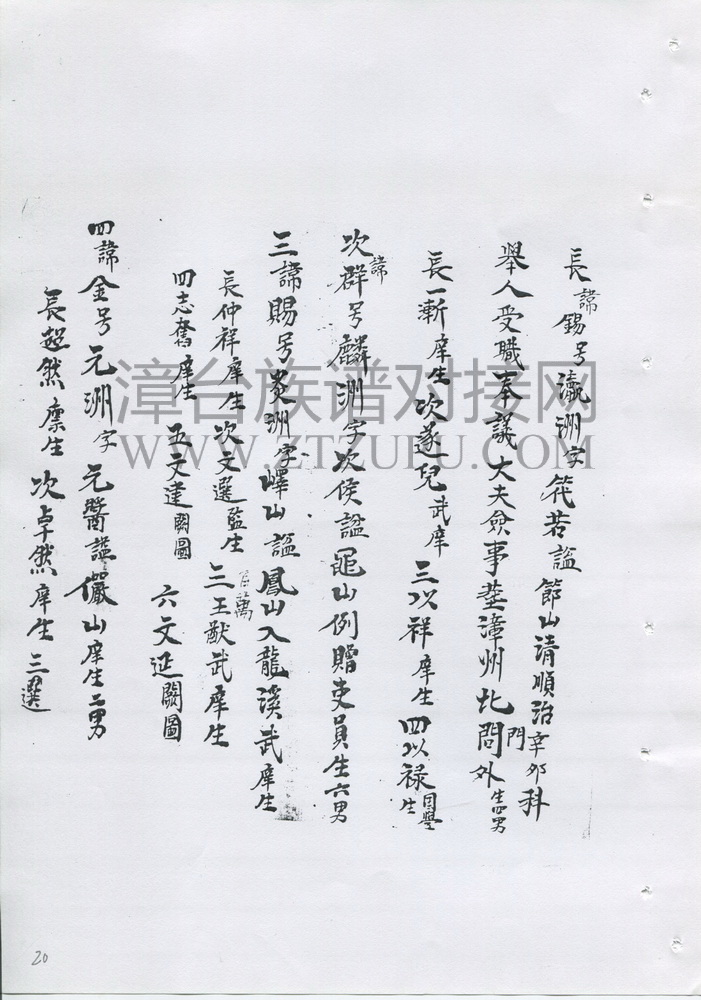 長諱錫号瀛洲字䇶若諡節山清順治辛卯科
舉人受職奉議大夫僉事塟漳州北門外生四男
長一漸庠生 次遂兒武庠 三以祥庠生 四以禄
次諱群号麟洲字次侯諡黽山例贈吏員生六男
三諱賜号炎洲字嶧山諡鳳山入龍溪武庠生
長仲祥庠生 次文選監生 三王猷武庠生
四志奮庠生 五文達闕圖 六文延闕圖
四諱金号元洲字元醫諡儼山庠生二男
長超然廪生 次卓然庠生 三選
漳台族谱对接网
WWW.ZTZUPU.COM
20